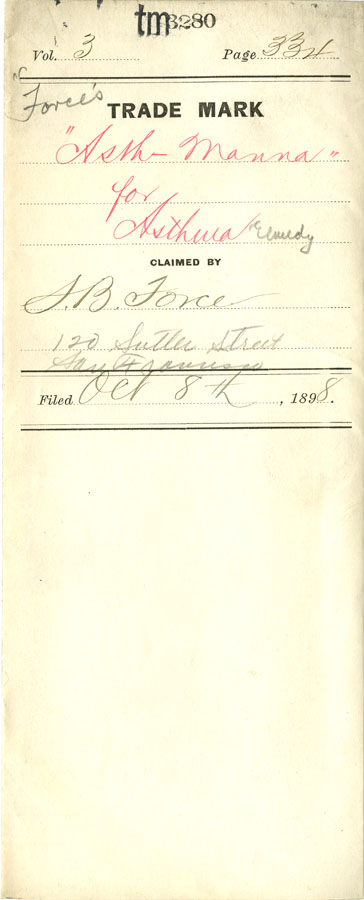 tm 3280
Vol. 3 Page 334
"Force's
TRADE MARK
"Asth-Manna"
for
Asthma Remedy
CLAIMED BY
J. B. Force
120 Sutter Street
San Francisco
Filed Oct 8th, 1898.